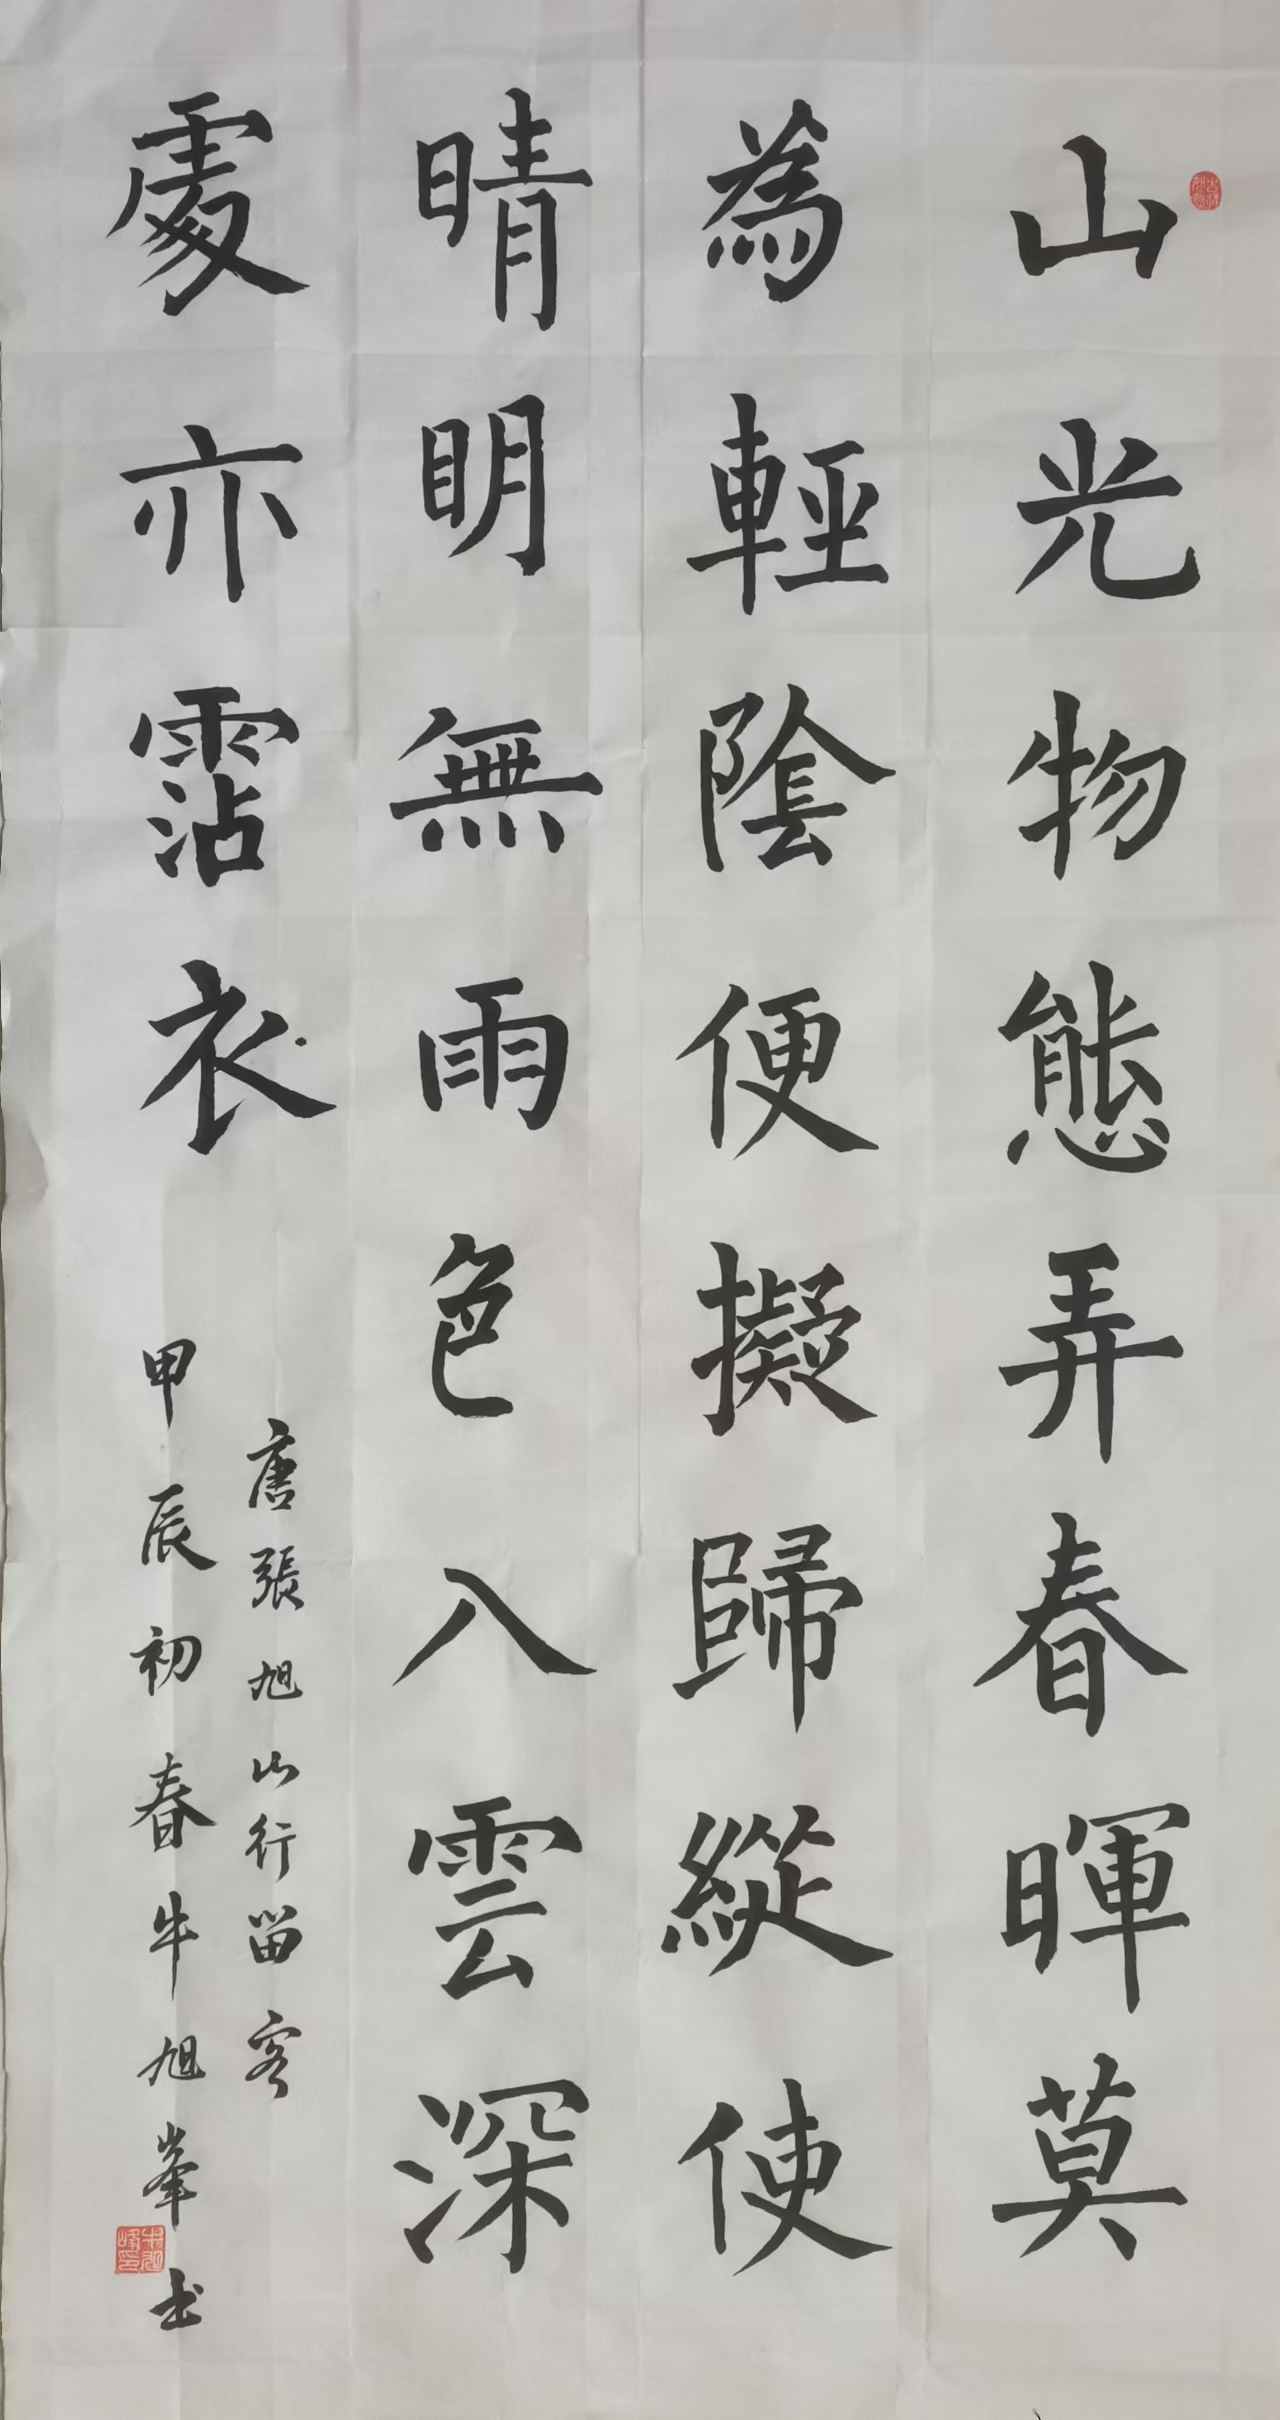 山光物態弄春暉莫
為輕陰便擬歸縱使
晴明無雨色入雲深
處亦霑衣
唐張旭山行留客
甲辰初春牛旭峯书